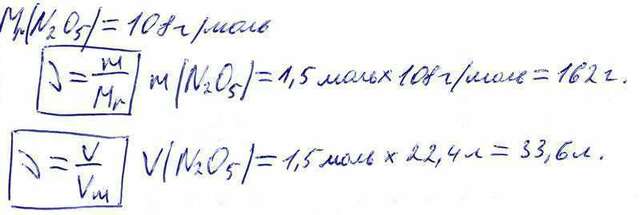 Mr(N₂O₅) = 108 г/моль
ν = m/Mr m(N₂O₅) = 1,5 моль × 108 г/моль = 162 г.
ν = V/Vm V(N₂O₅) = 1,5 моль × 22,4 л = 33,6 л.